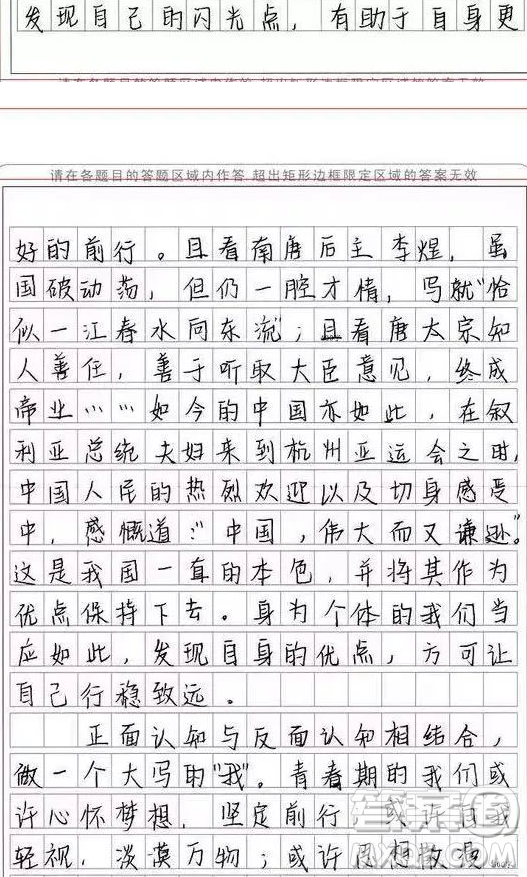 发现自己的闪光点，有助于自身更
请在各题目的答题区域内作答,超出矩形边框限定区域的答案无效
请在各题目的答题区域内作答,超出矩形边框限定区域的答案无效
好的前行。且看南唐后主李煜，虽
国破动荡，但仍一腔才情，写就“恰
似一江春水向东流”；且看唐太宗知
人善任，善于听取大臣意见，终成
帝业……如今的中国亦如此，在叙
利亚总统夫妇来到杭州亚运会之时，
中国人民的热烈欢迎以及切身感受
中，感慨道：“中国，伟大而又谦逊”。
这是我国一直的本色，并将其作为
优点保持下去。身为个体的我们当
应如此，发现自身的优点，方可让
自己行稳致远。
正面认知与反面认知相结合，
做一个大写的“我”。青春期的我们或
许心怀梦想，坚定前行，或许自我
轻视，淡漠万物；或许思想散漫